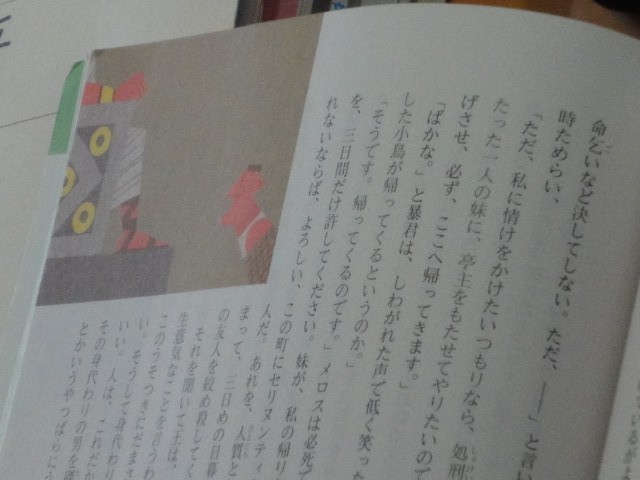 命乞いなど決してしない。ただ、――」と言い
時ためらい、
「ただ、私に情けをかけたいつもりなら、処刑
たった一人の妹に、亭主をもたせてやりたいので
げさせ、必ず、ここへ帰ってきます。」
「ばかな。」と暴君は、しわがれた声で低く笑った
した小鳥が帰ってくるというのか。」
「そうです。帰ってくるのです。」メロスは必死で
を、三日間だけ許してください。妹が、私の帰り
れないならば、よろしい、この町にセリヌンティ
人だ。あれを、人質と
まって、三日めの日暮
の友人を絞め殺してく
それを聞いて王は、
生意気なことを言うわ
このうそつきにだまさ
い。そうして身代わり
いい。人は、これだか
その身代わりの男を
とかいうやつばらにう